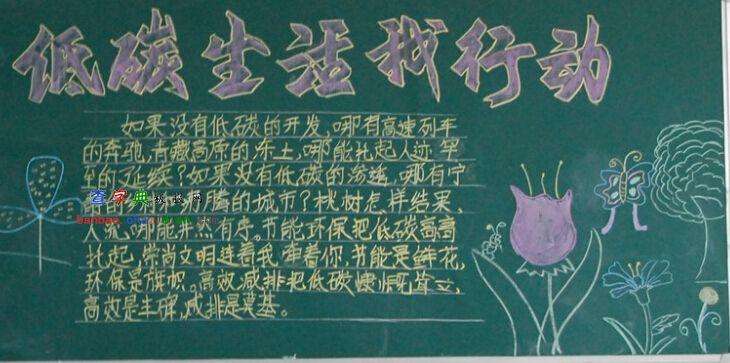 低碳生活我行动
如果没有低碳的开发,哪有高速列车
的奔驰,青藏高原的冻土,哪能扎起人迹罕
至的延续?如果没有低碳的沟通,哪有宁
的城市?桃树怎样结果
人流,哪能井然有序。节能环保把低碳高高
扎起,崇尚文明连着我,牵着你,节能是鲜花,
环保是旗帜。高效,减排把低碳慷慨耸立,
高效是丰碑,减排是奠基。
查字典